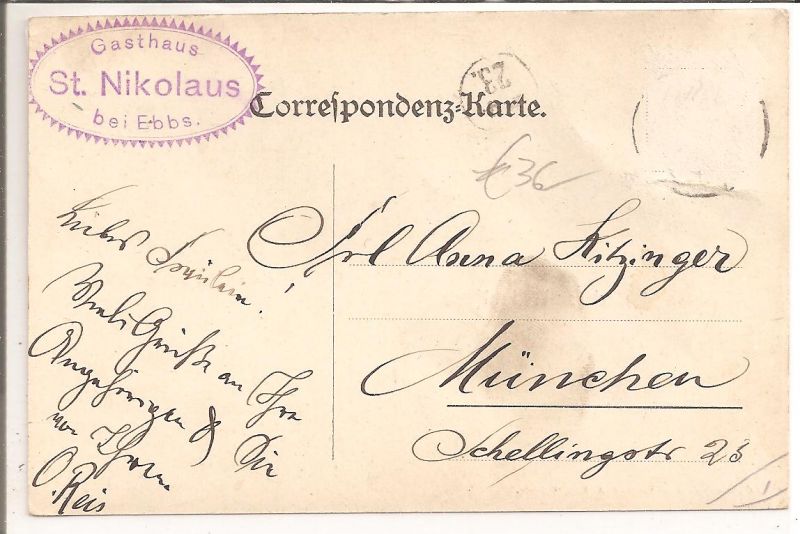 Gasthaus
St. Nikolaus
bei Ebbs.
Correspondenz-Karte.
23
36
Liebes Fräulein!
Viele Grüße an Ihre
Angehörigen & Sie
von Ihrem
O. Reis
Frl Anna Kitzinger
München
Schellingstr 23